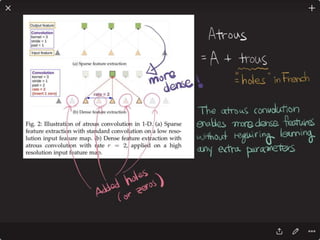 Output feature
Convolution
kernel = 3
stride = 1
pad = 1
Input feature
(a) Sparse feature extraction
Convolution
kernel = 3
stride = 1
pad = 2
rate = 2
(insert 1 zero)
rate = 2
(b) Dense feature extraction
Fig. 2: Illustration of atrous convolution in 1-D. (a) Sparse
feature extraction with standard convolution on a low reso-
lution input feature map. (b) Dense feature extraction with
atrous convolution with rate r = 2, applied on a high
resolution input feature map.
more
dense!
Added holes
(or zeros)
Atrous
= A + trous
= "holes" in French
The atrous convolution
enables more dense features
without requiring learning
any extra parameters